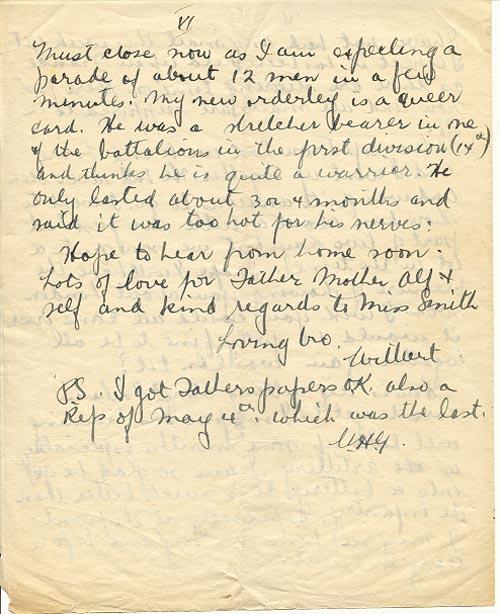 VI
Must close now as I am expecting a
parade of about 12 men in a few
minutes. My new orderley is a queer
card. He was a stretcher bearer in one
of the battalions in the first division (14th)
and thinks he is quite a warrior. He
only lasted about 3 or 4 months and
said it was too hot for his nerves.
Hope to hear from home soon.
Lots of love for Father Mother, Alf &
self and kind regards to Miss Smith
Loving bro.
Wilbert.
P.S. I got Fathers papers OK also a
Rep of May 4th. which was the last.